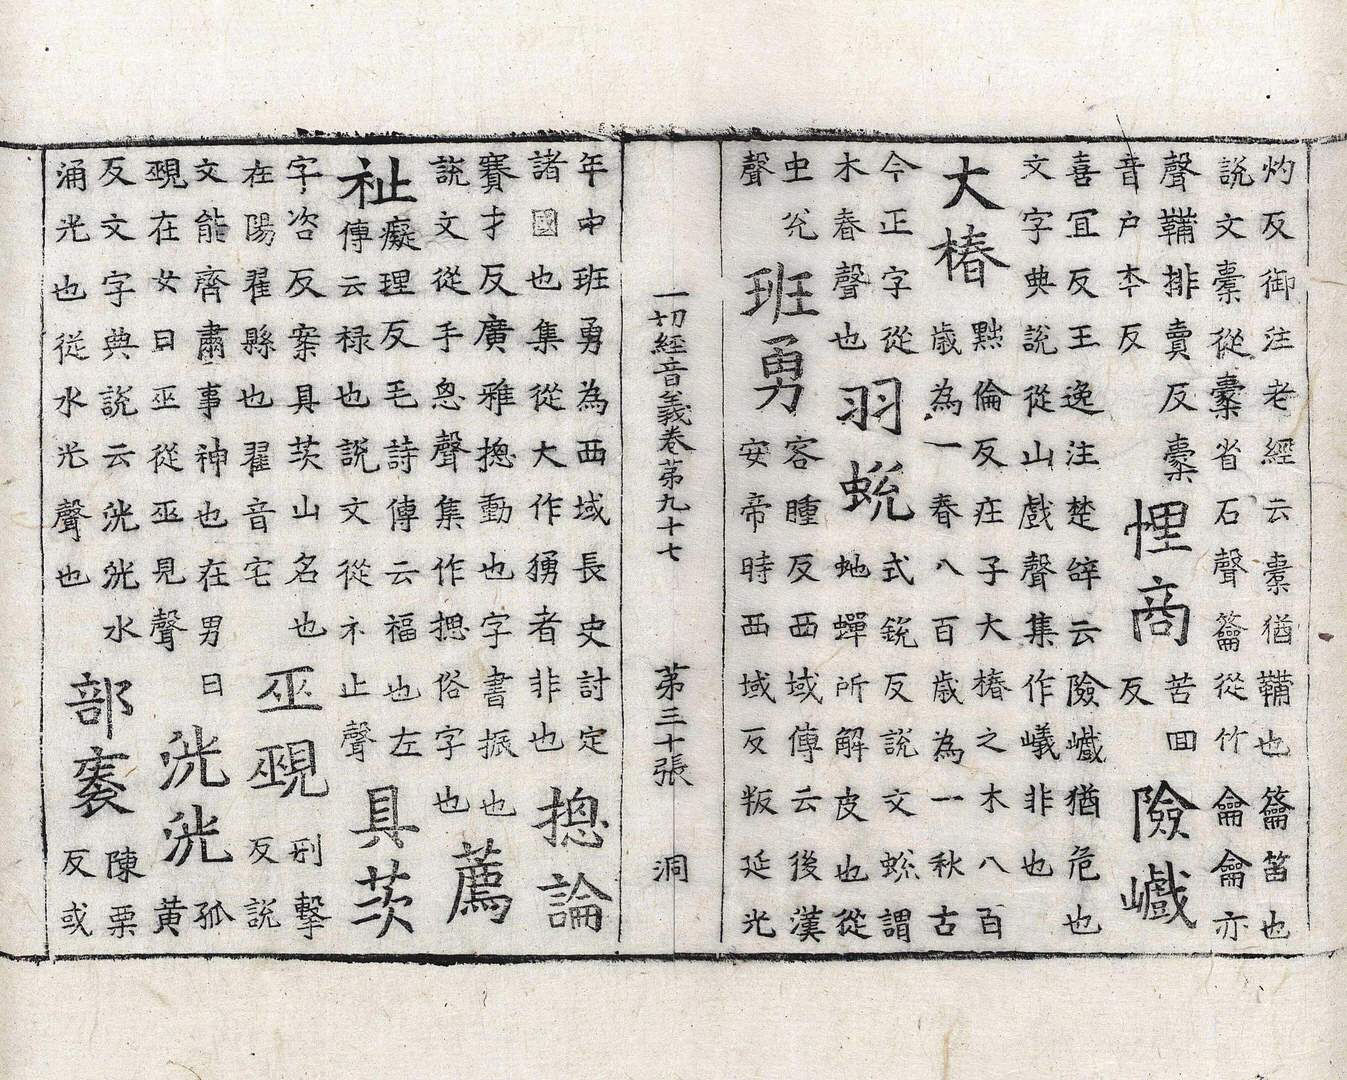 灼反御注老經云橐猶鞴也籥笛也
說文橐從㯻省石聲籥從竹龠龠亦
聲鞴排賣反橐
音户本反
悝商
苦回
反
險巇
喜宜反王逸注楚辝云險巇猶危也
文字典說從山戲聲集作㠖非也
大椿
黜倫反庄子大椿之木八百
歲為一春八百歲為一秋古
今正字從
木春聲也
羽蛻
式銳反說文蛻謂
虵蟬所解皮也從
虫兊
聲
班勇
容腫反西域傳云後漢
安帝時西域反叛延光
一切經音義卷第九十七 第三十張 洞
年中班勇為西域長史討定
諸國也集從犬作猲者非也
摠論
賽才反廣雅摠動也字書振也
說文從手悤聲集作揔俗字也
薦
祉
癡理反毛詩傳云福也左
傳云禄也說文從礻止聲
具茨
字咨反案具茨山名也
在陽翟縣也翟音宅
巫覡
刑擊
反說
文能齊肅事神也在男曰
覡在女曰巫從巫見聲
洸洸
孤
黃
反文字典說云洸洸水
涌光也從水光聲也
部袠
陳栗
反或